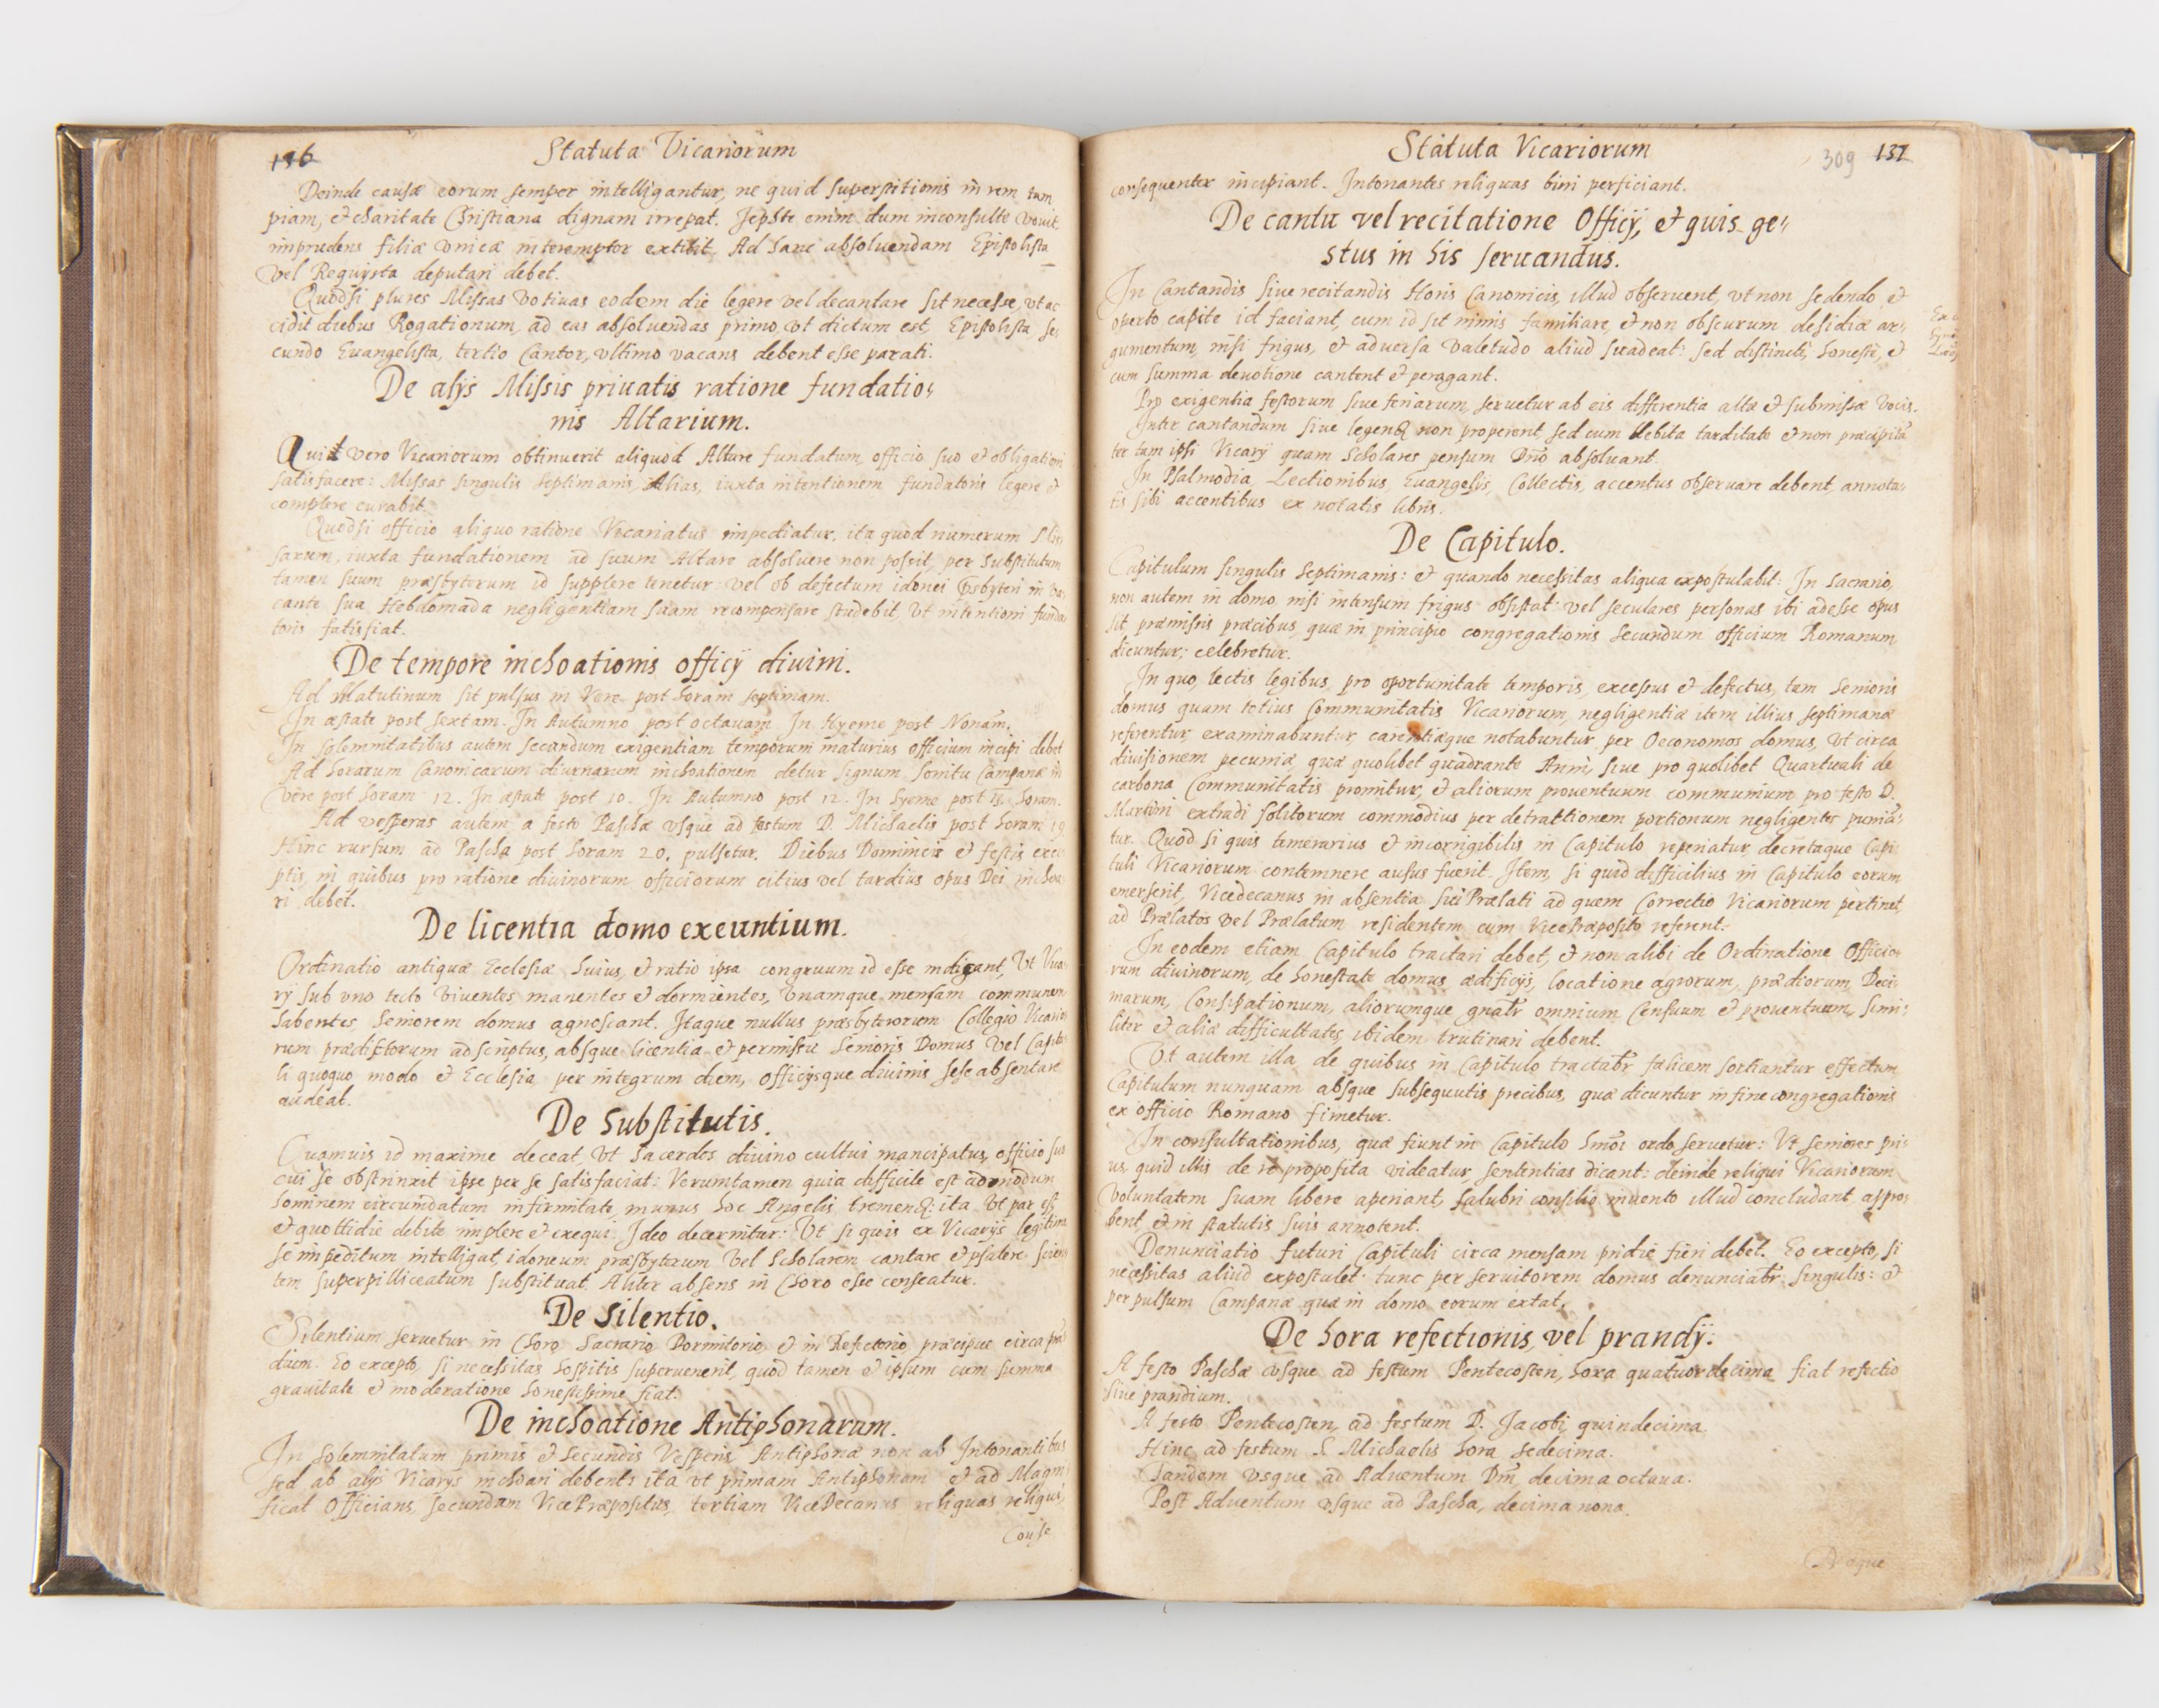 136
Statuta Vicariorum
Deinde causæ eorum semper intelligantur, ne quid superstitionis in rem tam
piam, et charitate Christiana dignam irrepat. Jephte enim dum inconsulte vovit,
imprudens filiæ vnicæ interemptor extitit. Ad hanc absoluendam Epistolista
vel Requista deputari debet.
Quodsi plures Missas votiuas eodem die legere vel decantare sit necesse, vt ac
cidit diebus Rogationum, ad eas absoluendas primo, vt dictum est, Epistolista se,
cundo Euangelista, tertio Cantor, vltimo vacans debent esse parati.
De alijs Missis priuatis ratione fundatio,
nis Altarium.
Quit vero Vicariorum obtinuerit aliquod Altare fundatum, officio suo et obligationi
satisfacere: Missas singulis Septimanis, alias, iuxta intentionem fundatoris legere et
complere curabit.
Quodsi officio aliquo ratione Vicariatus impediatur, ita quod numerum Mis,
sarum, iuxta fundationem ad suum Altare absoluere non possit, per Substitutum
tamen suum præsbyterum id supplere tenetur: vel ob defectum idonei Præsbyteri in va,
cante sua Hebdomada negligentiam suam recompensare studebit, vt intentioni funda
toris satisfiat.
De tempore inchoationis officij diuini.
Ad Matutinum sit pulsus in Vere post horam septimam.
In æstate post sextam. In Autumno post octauam. In Hyeme post Nonam.
In solemnitatibus autem secundum exigentiam temporum maturius officium incipi debet
Ad horarum Canonicarum diurnarum inchoationem detur signum sonitu Campanæ in
vere post horam 12. In æstate post 10. In Autumno post 12. In hyeme post 15. horam.
Ad vesperas autem a festo Paschæ vsque ad festum D. Michaelis post horam 19
Hinc rursum ad Pascha post horam 20. pulsetur. Diebus Dominicis et festis exce
ptis, in quibus pro ratione diuinorum officiorum citius vel tardius opus Dei inchoa
ri debet.
De licentia domo exeuntium.
Ordinatio antiquæ Ecclesiæ huius, et ratio ipsa congruum id esse indicant, Vt Vica
rij sub vno tecto viuentes, manentes et dormientes, vnamque mensam communem
habentes, Seniorem domus agnoscant. Itaque nullus præsbyterorum Collegio Vicario
rum prædictorum adscriptus, absque licentia et permissu Senioris Domus vel Capitu
li quoquo modo et Ecclesia per integrum diem, officijsque diuinis sese absentare
audeat.
De Substitutis.
Quamuis id maxime deceat, vt Sacerdos diuino cultui mancipatus, officio suo
cui se obstrinxit ipse per se satisfaciat: Verumtamen quia difficile est admodum
hominem circumdatum infirmitate, munus hoc Angelis tremendum: ita vt par est
et quottidie debite implere et exequi. Ideo decernitur: Vt si quis ex Vicarijs legitime
se impeditum intelligat, idoneum præsbyterum vel Scholarem cantare et psalere scien
tem superpilliceatum substituat. Aliter absens in Choro esse censeatur.
De silentio.
Silentium seruetur in Choro, Sacrario, Dormitorio, et in Refectorio, præcipue circa pran
dium. Eo excepto, si necessitas hospitis superuenerit, quod tamen et ipsum cum summa
grauitate et moderatione honestissime fiat.
De inchoatione Antiphonarum.
In Solemnitatum primis et Secundis Vesperis Antiphonæ non ab Intonantibus
sed ab alijs Vicarijs inchoari debent: ita vt primam Antiphonam et ad Magni
ficat Officians, secundam VicePræpositus, tertiam ViceDecanus reliquas reliqui,
Conse
Statuta Vicariorum
309 137
consequenter incipiant. Intonantes reliquas bini perficiant.
De cantu vel recitatione Officij, et quis ge,
stus in his seruandus.
In Cantandis siue recitandis Horis Canonicis, illud obseruent, vt non sedendo, et
operto capite id faciant, cum id sit nimis familiare, et non obscurum desidiæ ar,
gumentum, nisi frigus, et aduersa valetudo aliud suadeat: sed distincte, honeste, et
cum summa deuotione cantent et peragant.
Pro exigentia festorum siue feriarum, seruetur ab eis differentia altæ et submissæ vocis.
Inter cantandum siue legendum non properent, sed cum debita tarditate et non præcipitan
ter tam ipsi Vicarij quam Scholares pensum Dno absoluant.
In Psalmodia, Lectionibus, Euangelijs, Collectis, accentus obseruare debent, annota,
tis sibi accentibus ex notatis libris.
De Capitulo.
Capitulum singulis Septimanis: et quando necessitas aliqua expostulabit: In Sacrario,
non autem in domo, nisi intensum frigus obsistat: vel seculares personas ibi adesse opus
sit præmissis præcibus, quæ in principio congregationis secundum officium Romanum
dicuntur; celebretur.
In quo, lectis legibus, pro oportunitate temporis, excessus et defectus, tam Senioris
domus quam totius Communitatis Vicariorum, negligentiæ item illius septimanæ
referentur, examinabuntur, carentiæque notabuntur per Oeconomos domus, vt circa
diuisionem pecuniæ, quæ quolibet quadrante Anni, siue pro quolibet Quartuali de
carbona Communitatis promitur, et aliorum prouentuum communium pro festo D.
Martini extradi solitorum commodius per detractionem portionum negligentes punian,
tur. Quod si quis temerarius et incorrigibilis in Capitulo reperiatur, decretaque Capi
tuli Vicariorum contemnere ausus fuerit. Item, si quid difficilius in Capitulo eorum
emerserit, Vicedecanus in absentia sui Prælati ad quem Correctio Vicariorum pertinet,
ad Prælatos vel Prælatum residentem cum VicePræposito referent.
In eodem etiam Capitulo tractari debet, et non alibi de Ordinatione Officio,
rum diuinorum, de honestate domus ædificijs, locatione agrorum, prædiorum, Deci
marum, aliorumque gnatr omnium Censuum et prouentuum, Simi,
liter et aliæ difficultates ibidem trutinari debent.
Vt autem illa, de quibus in Capitulo tractatr, fælicem sortiantur effectum
Capitulum nunquam absque subsequutis precibus, quæ dicuntur in fine congregationis
ex officio Romano finietur.
In consultationibus, quæ fiunt in Capitulo hmoi ordo seruetur: Vt seniores pri,
us, quid illis de re proposita videatur, sententias dicant: deinde reliqui Vicariorum
voluntatem suam libere aperiant, salubri consilio inuento illud concludant, appro,
bent, et in statutis suis annotent.
Denunciatio futuri Capituli circa mensam pridie fieri debet. Eo excepto, si
necessitas aliud expostulet: tunc per seruitorem domus denunciatr singulis: et
per pulsum Campanæ quæ in domo eorum extat.
De hora refectionis, vel prandij.
A festo Paschæ vsque ad festum Pentecosten, hora quatuordecima fiat refectio
siue prandium.
A festo Pentecosten, ad festum D. Jacobi, quindecima.
Hinc ad festum S. Michaelis hora sedecima.
Tandem vsque ad Aduentum Dni, decima octaua.
Post Aduentum vsque ad Pascha, decima nona.